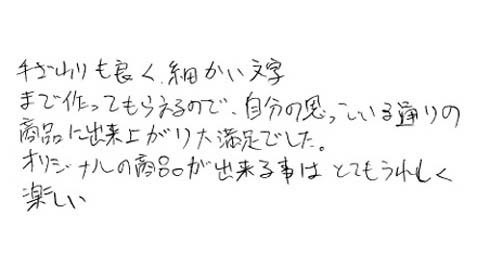 手ざわりも良く、細かい文字
まで作ってもらえるので、自分の思っている通りの
商品に出来上がり大満足でした。
オリジナルの商品が出来る事はとてもうれしく
楽しい